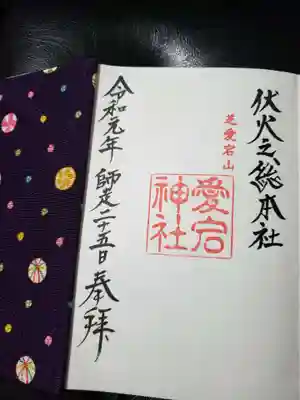 伏火之総本社
芝愛宕山
愛宕
神社
令和元年 師走二十五日 奉拝